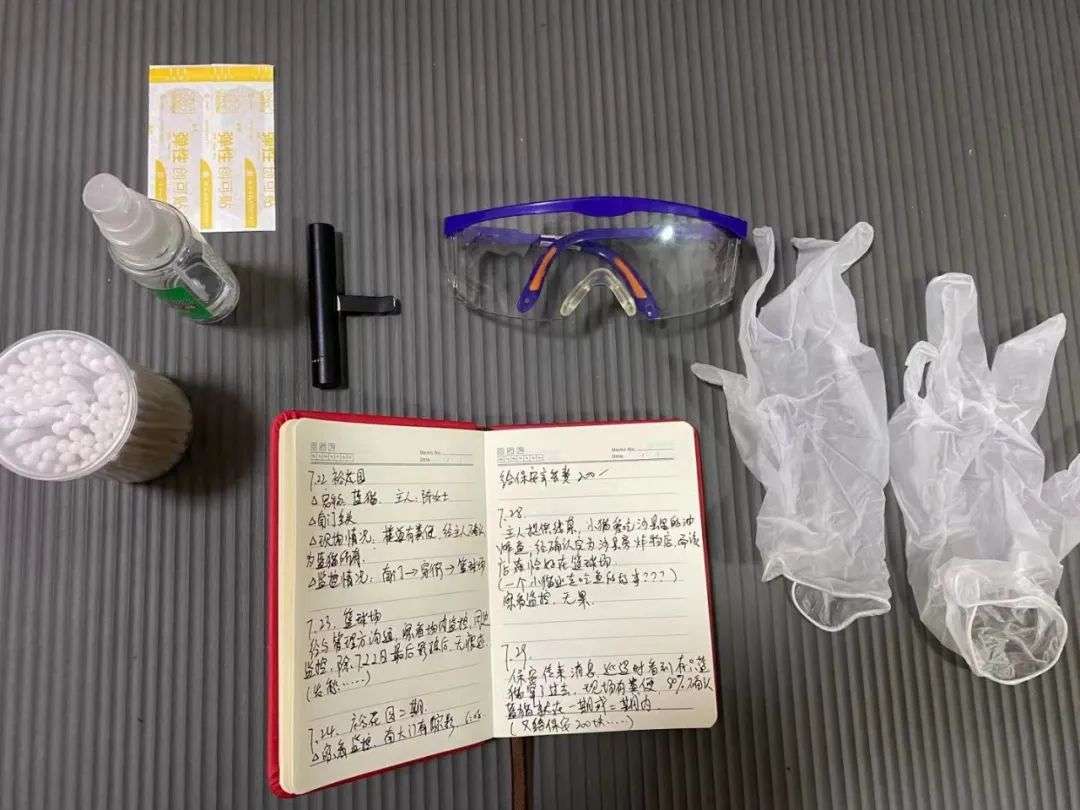 弹性 创可贴
弹性 创可贴
弹性 创可贴
Memo No.
Date
7.22 裕花园
△ 蓝猫. 主人:陈女士
△南门丢失
△现场情况: 有粪便, 经主人确认
为蓝猫所有.
△监控情况: 南门→ →篮球场
7.23. 篮球场
经与管理方沟通, 查看场内监控, 周边
监控, 除7.22日最后影踪后, 无
7.24. 裕花园二期.
△查看监控, 南大门有踪影
Memo No.
Date
给保安辛苦费 200
7.28.
主人提供线索, 小猫爱吃沙县 的油
炸 , 经确认定为沙县旁炸物店, 而该
店 恰好在篮球场.
(一个小猫 吃 的 ???)
查看监控, 无果.
7.29.
保安传来消息, 巡逻时看到有蓝
猫窜了过去, 现场有粪便, 90%确认
蓝猫就在一期或二期内.
(又给保安200块……)